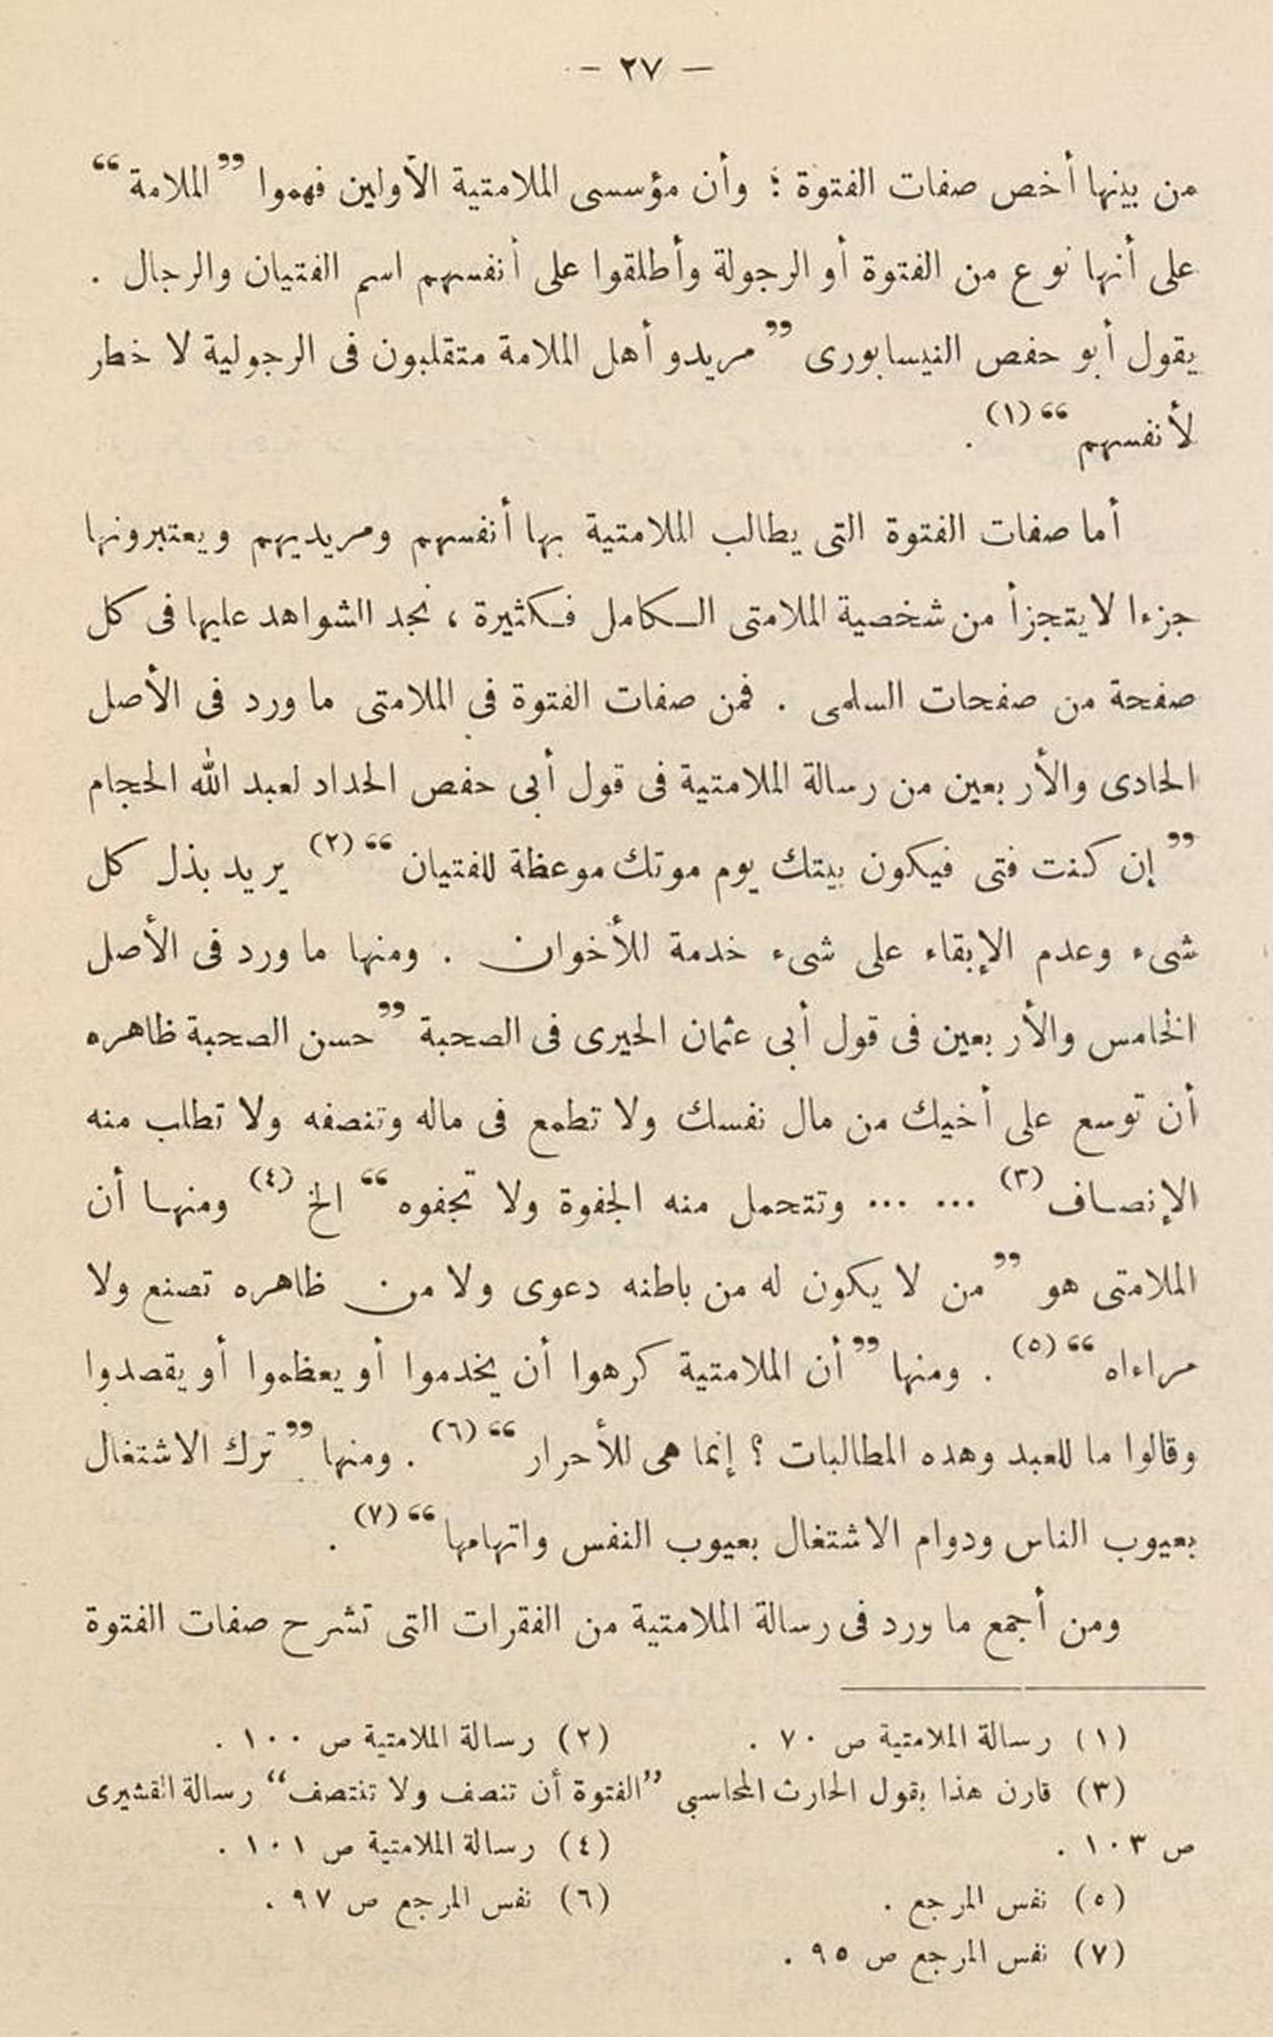 — ٢٧ —
من بينها أخص صفات الفتوة ؛ وأن مؤسسى الملامتية الأولين فهموا ”الملامة“
على أنها نوع من الفتوة أو الرجولة وأطلقوا على أنفسهم اسم الفتيان والرجال .
يقول أبو حفص النيسابورى ”مريدو أهل الملامة متقلبون فى الرجولية لا خطر
لأنفسهم“ (١) .
أما صفات الفتوة التى يطالب الملامتية بها أنفسهم ومريديهم ويعتبرونها
جزءا لا يتجزأ من شخصية الملامتى الكامل فكثيرة ، نجد الشواهد عليها فى كل
صفحة من صفحات السلمى . فمن صفات الفتوة فى الملامتى ما ورد فى الأصل
الحادى والأربعين من رسالة الملامتية فى قول أبى حفص الحداد لعبد الله الحجام
”إن كنت فتى فيكون بيتك يوم موتك موعظة للفتيان“ (٢) يريد بذل كل
شىء وعدم الإبقاء على شىء خدمة للأخوان . ومنها ما ورد فى الأصل
الخامس والأربعين فى قول أبى عثمان الحيرى فى الصحبة ”حسن الصحبة ظاهره
أن توسع على أخيك من مال نفسك ولا تطمع فى ماله وتنصفه ولا تطلب منه
الإنصاف (٣) ... ... وتتحمل منه الجفوة ولا تجفوه“ الخ (٤) ومنها أن
الملامتى هو ”من لا يكون له من باطنه دعوى ولا من ظاهره تصنع ولا
مراءاه“ (٥) . ومنها ”أن الملامتية كرهوا أن يخدموا أو يعظموا أو يقصدوا
وقالوا ما للعبد وهذه المطالبات ؟ إنما هى للأحرار“ (٦) . ومنها ”ترك الاشتغال
بعيوب الناس ودوام الاشتغال بعيوب النفس واتهامها“ (٧) .
ومن أجمع ما ورد فى رسالة الملامتية من الفقرات التى تشرح صفات الفتوة
(١) رسالة الملامتية ص ٧٠ . (٢) رسالة الملامتية ص ١٠٠ .
(٣) قارن هذا بقول الحارث المحاسبي ”الفتوة أن تنصف ولا تنتصف“ رسالة القشيرى
ص ١٠٣ . (٤) رسالة الملامتية ص ١٠١ .
(٥) نفس المرجع . (٦) نفس المرجع ص ٩٧ .
(٧) نفس المرجع ص ٩٥ .